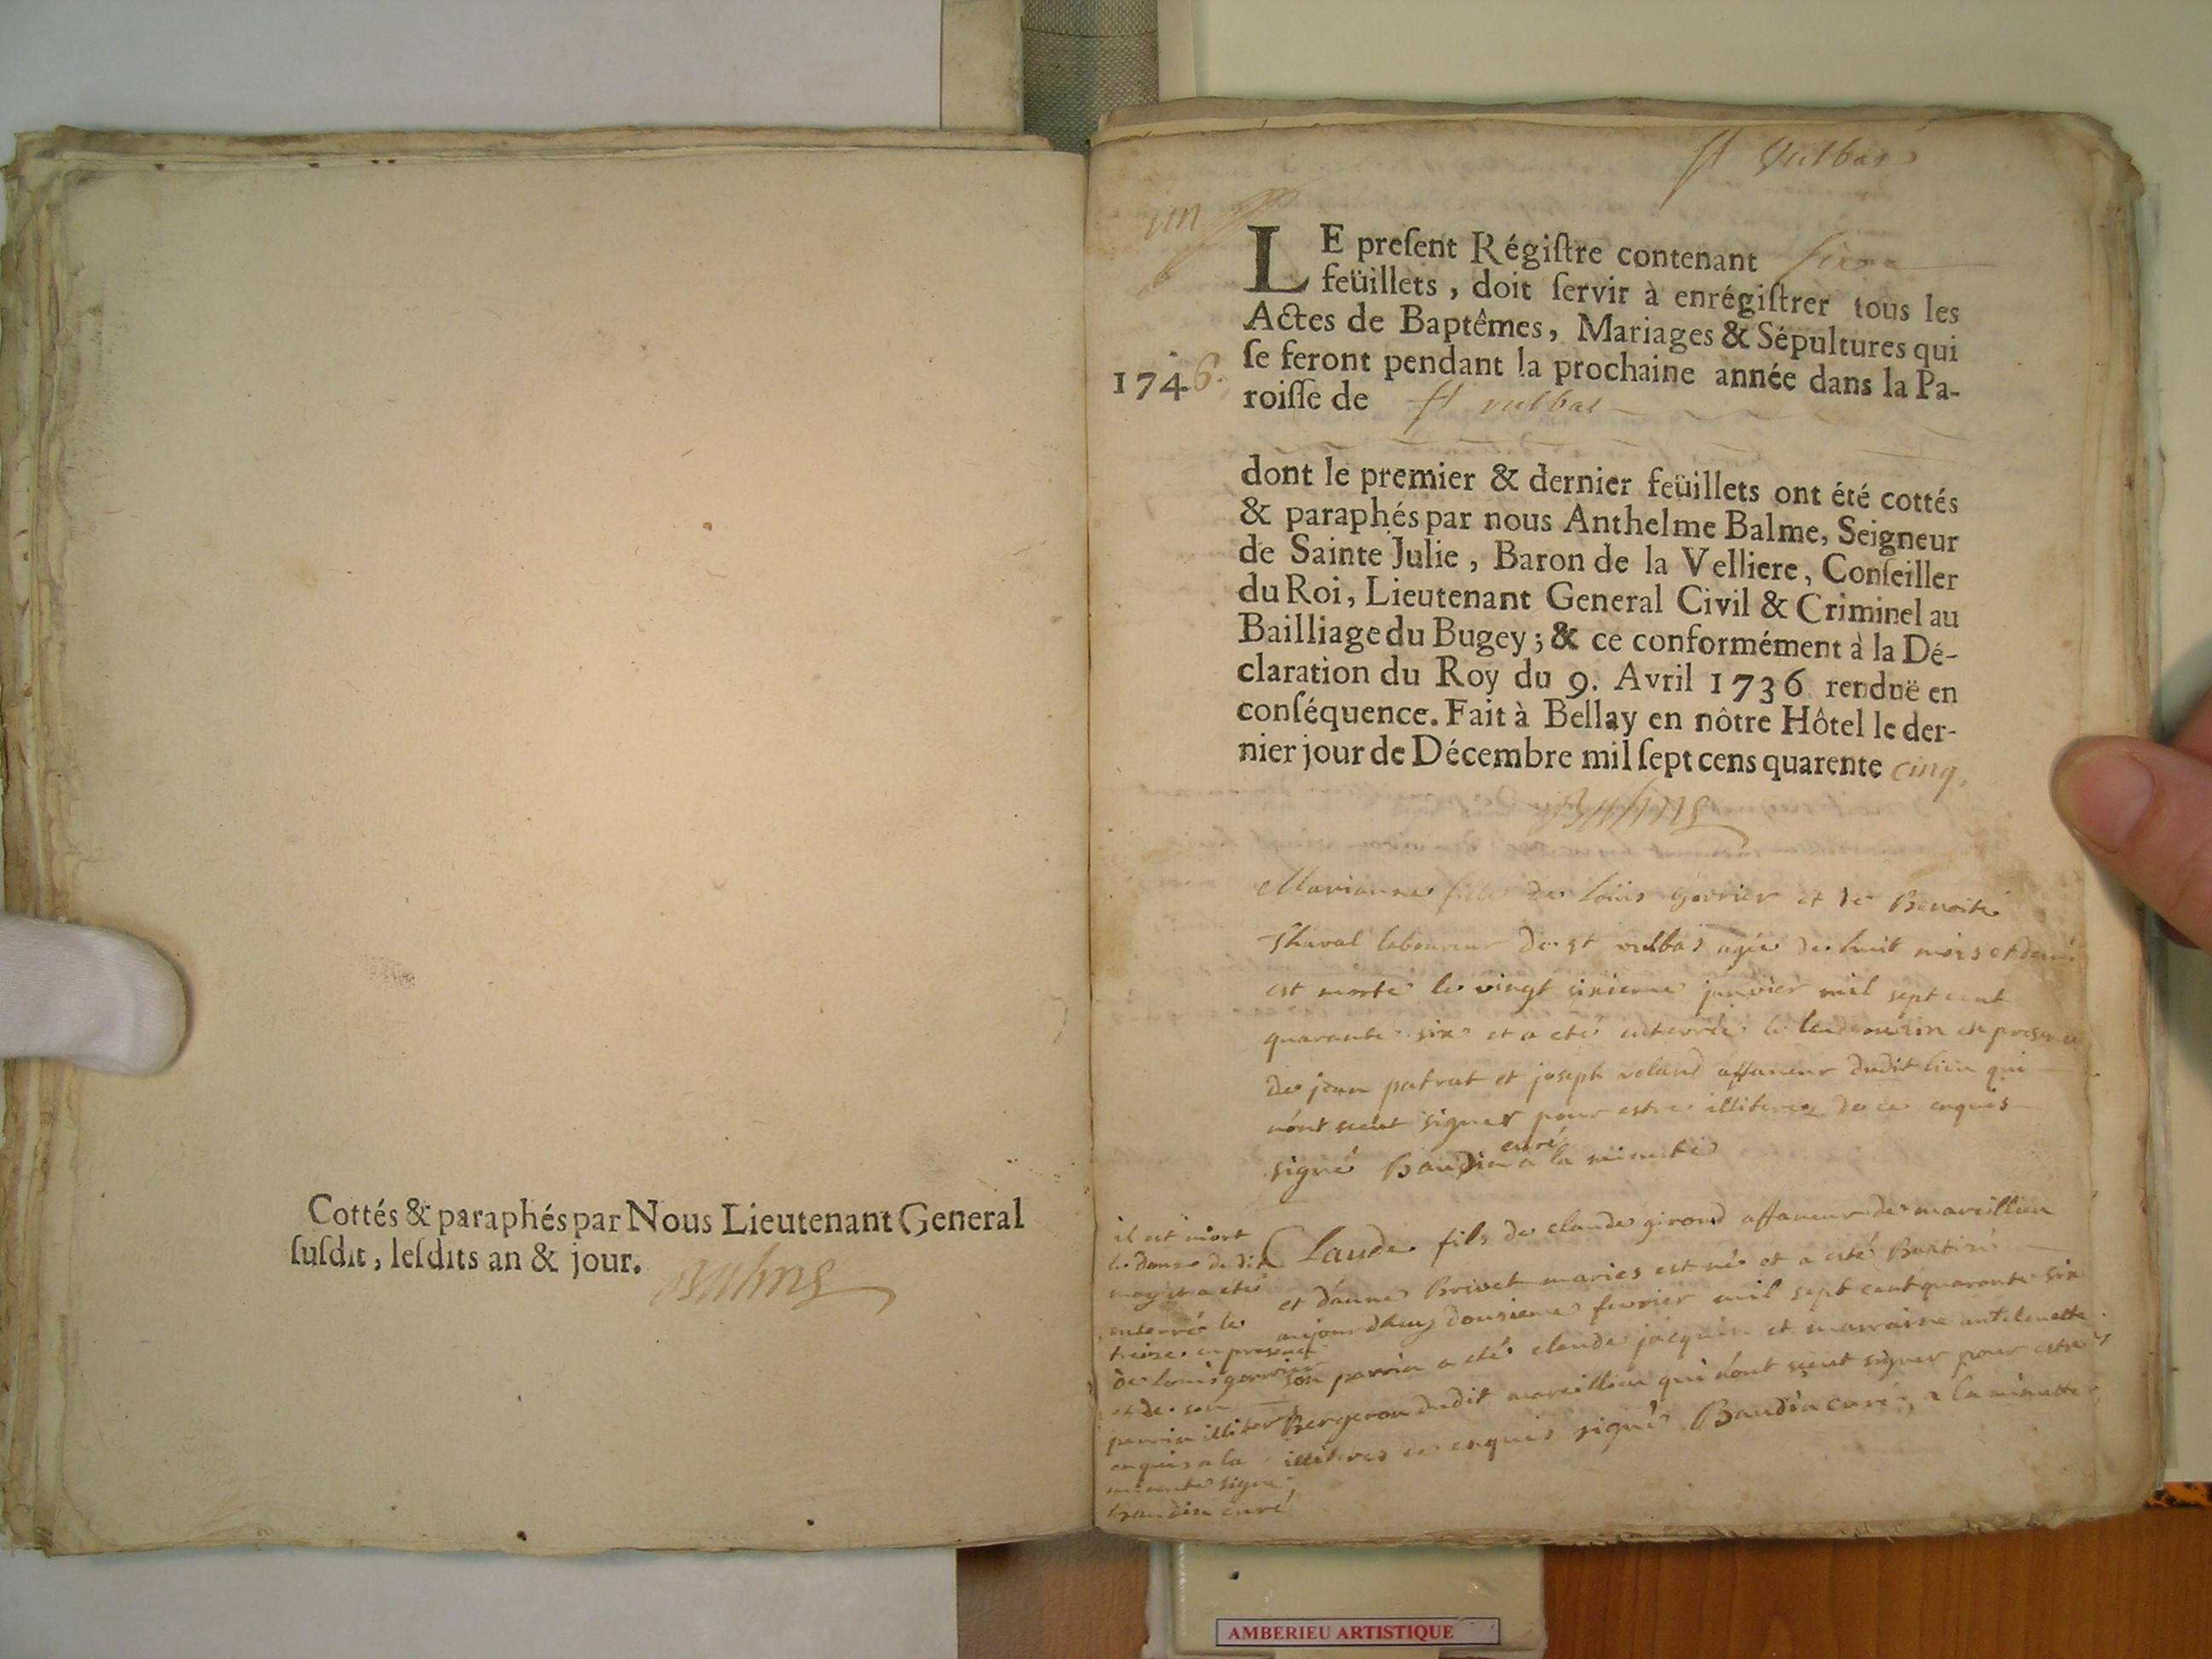 Cottés & paraphés par Nous Lieutenant General
ſuſdit, leſdits an & jour.
Balme
st Vulbas
un
LE preſent Régiſtre contenant
feüillets, doit ſervir à enrégiſtrer tous les
Actes de Baptêmes, Mariages & Sépultures qui
ſe feront pendant la prochaine année dans la Pa-
1746.
roiſſe de st vulbas
dont le premier & dernier feüillets ont été cottés
& paraphés par nous Anthelme Balme, Seigneur
de Sainte Julie, Baron de la Velliere, Conſeiller
du Roi, Lieutenant General Civil & Criminel au
Bailliage du Bugey; & ce conformément à la Dé-
claration du Roy du 9. Avril 1736 renduë en
conſéquence. Fait à Bellay en nôtre Hôtel le der-
nier jour de Décembre mil ſept cens quarente cinq.
Balme
Marianne fille de loüis gorrier et de Benoite
laboureur de st vulbas agée de huit mois et demi
est morte le vingt sixieme janvier mil sept cent
quarante six et a eté enterrée le lendemain en presence
de jean patrat et joseph veland affaneur dudit lieu qui
n'ont sceut signer pour estre illiterez de ce enquis
signé Baudin curé a la minute
Claude fils de claude girond affaneur de marcillieu
et d'anne Brivet maries est né et a eté Baptisé
aujourdhuy dousieme fevrier mil sept cent quarante six
son parrin a eté claude jacquin et marraine antelmette
Bergeron dudit marcillieu qui n'ont sceut signer pour estre
illiteres de enquis signé Baudin curé, a la minutte
il est mort
le douse dudit
may et a eté
enterré le
treize en presence
de louis gorrier
et de son
parrin illiteres
enquis a la
minute signé
baudin curé
AMBERIEU ARTISTIQUE